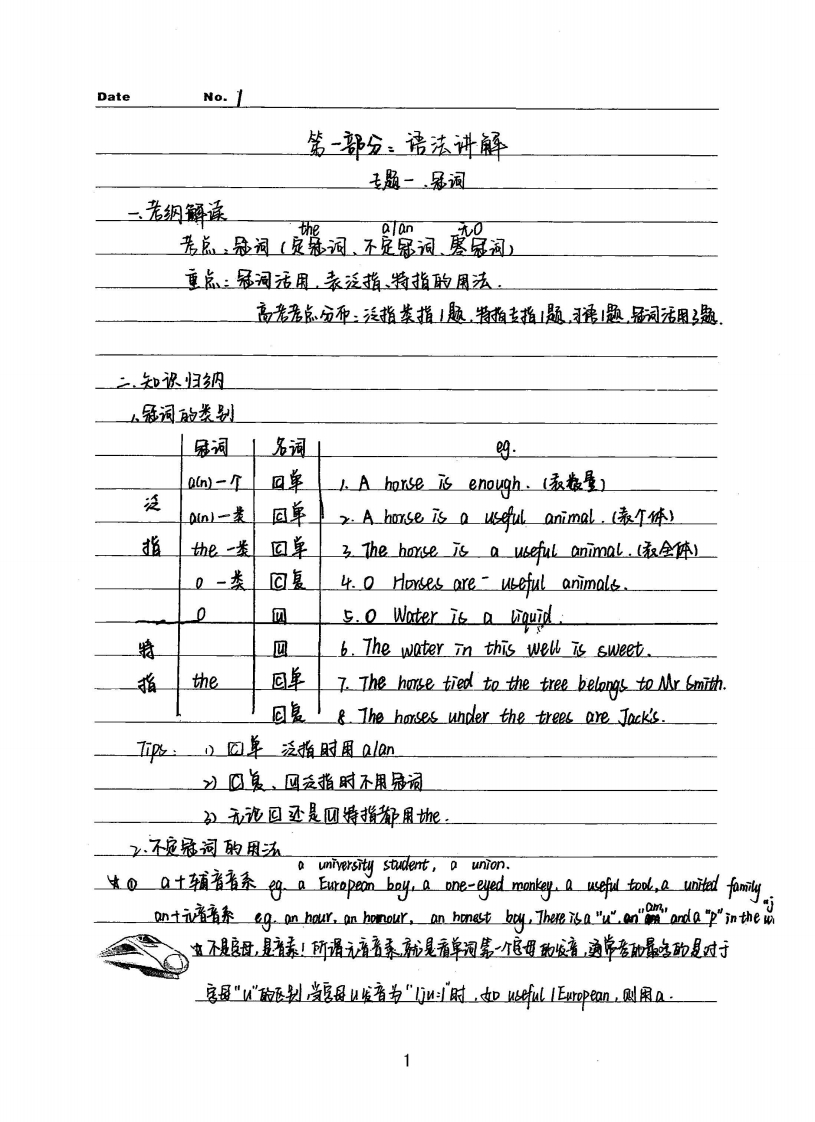 Date No. 1
第一部分：语法讲解
专题一、冠词
一、考纲解读
the a/an 无0
考点：冠词（定冠词、不定冠词、零冠词）
重点：冠词活用，表泛指、特指的用法．
高考考点分布：泛指类指1题，特指专指1题，习语1题，冠词活用3题．
二、知识归纳
1、冠词的类别
冠词 名词 eg.
泛指
a(n)一个 C单 1. A horse is enough．（表数量）
a(n)一类 C单 2. A horse is a useful animal．（表个体）
the 一类 C单 3. The horse is a useful animal．（表全体）
0 一类 C复 4. 0 Horses are useful animals．
0 U 5. 0 Water is a liquid．
特指
U 6. The water in this well is sweet．
the C单 7. The horse tied to the tree belongs to Mr Smith．
C复 8. The horses under the trees are Jack's．
Tips： 1) C单 泛指时用 a/an
2) C复、U泛指时不用冠词
3) 无论C还是U特指都用the．
2、不定冠词的用法
a university student, a union.
① a＋辅音音素 eg. a European boy, a one-eyed monkey, a useful tool, a united family
an＋元音音素 eg. an hour, an honour, an honest boy, There is a "u", an "m", and a "p" in the
不是字母，是音素！所谓元音音素，就是看单词第一个字母的发音，通常考的最多的是对于
字母"u"的区别，当字母u发音为"[ju:]"时，如 useful / European，则用a．
1